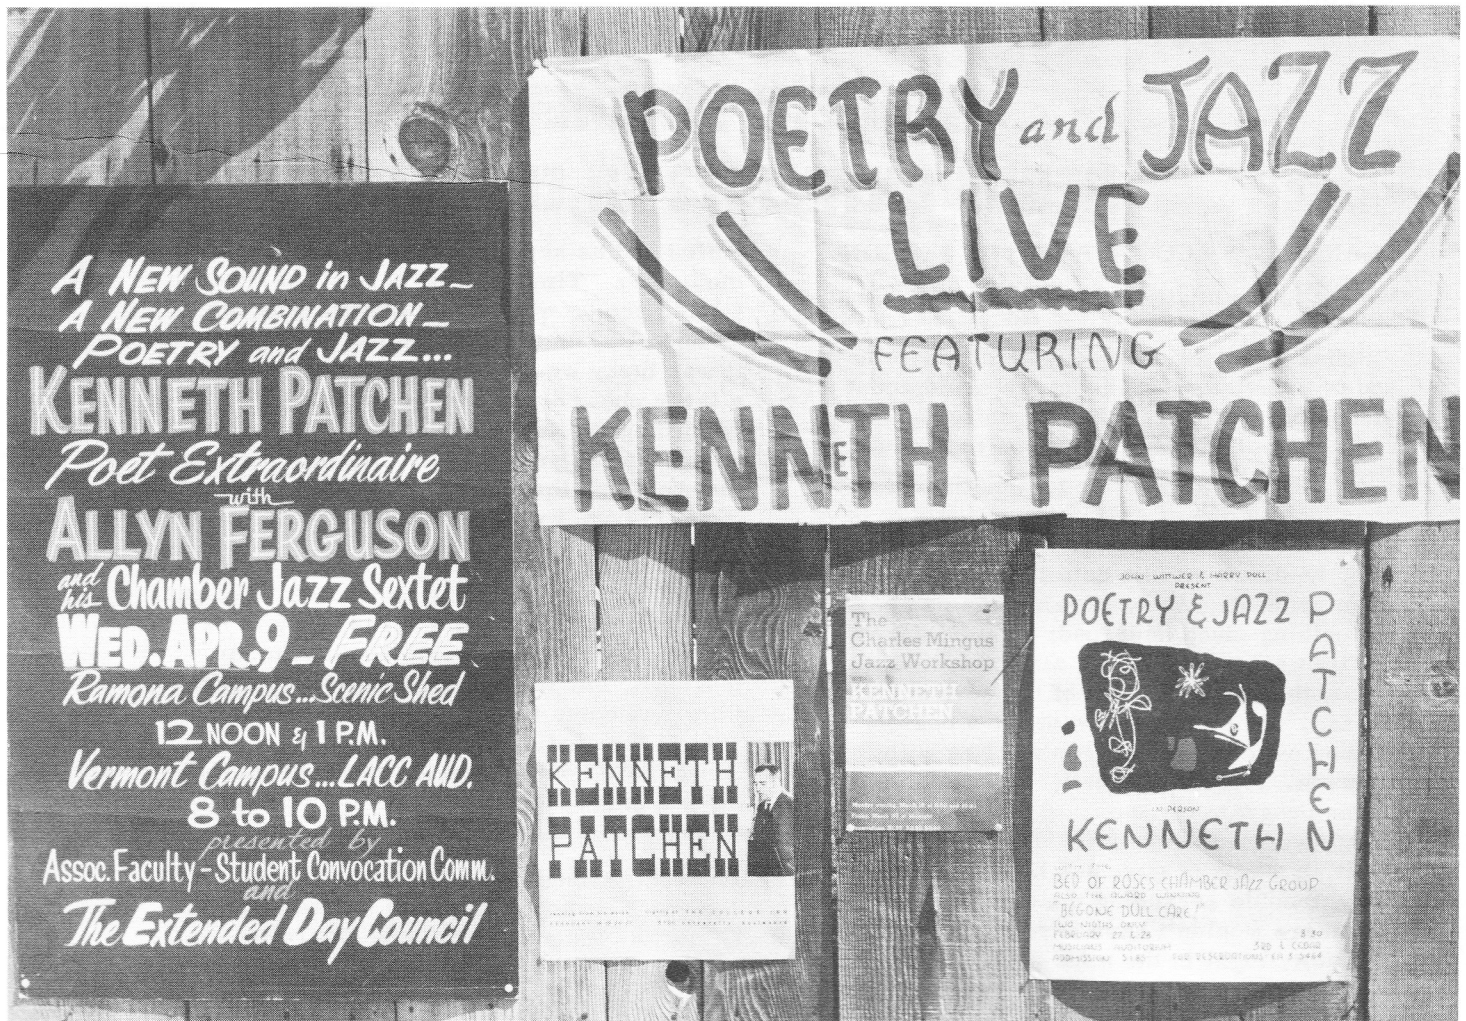 A NEW SOUND in JAZZ—
A NEW COMBINATION—
POETRY and JAZZ...
KENNETH PATCHEN
Poet Extraordinaire
with
ALLYN FERGUSON
and his Chamber Jazz Sextet
WED. APR. 9 – FREE
Ramona Campus...Scenic Shed
12 NOON & 1 P.M.
Vermont Campus....LACC AUD.
8 to 10 P.M.
presented by
Assoc. Faculty–Student Convocation Comm.
and
The Extended Day Council
POETRY and JAZZ
LIVE
FEATURING
KENNETH PATCHEN
KENNETH
PATCHEN
The
Charles Mingus
Jazz Workshop
KENNETH
PATCHEN
JOHN WITTWER & HARRY DULL
PRESENT
POETRY & JAZZ
PATCHEN
IN PERSON
KENNETH
BED OF ROSES CHAMBER JAZZ GROUP
ALSO THE AWARD WINNING
"BEGONE DULL CARE!"
TWO NIGHTS ONLY
FEBRUARY 8:30
MUSICIANS AUDITORIUM 3RD & CEDAR
ADMISSION FOR RESERVATIONS